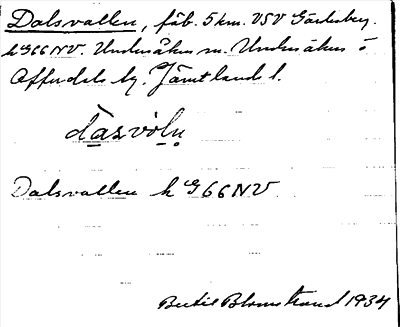 Dalsvallen, fäb. 5 km. VSV Gärdesberg.
k G66NV. Undersåkers sn. Undersåkers o
Offerdals tg. Jämtlands l.
dasvòln
Dalsvallen k G66NV
Bertil Blomstrand 1934